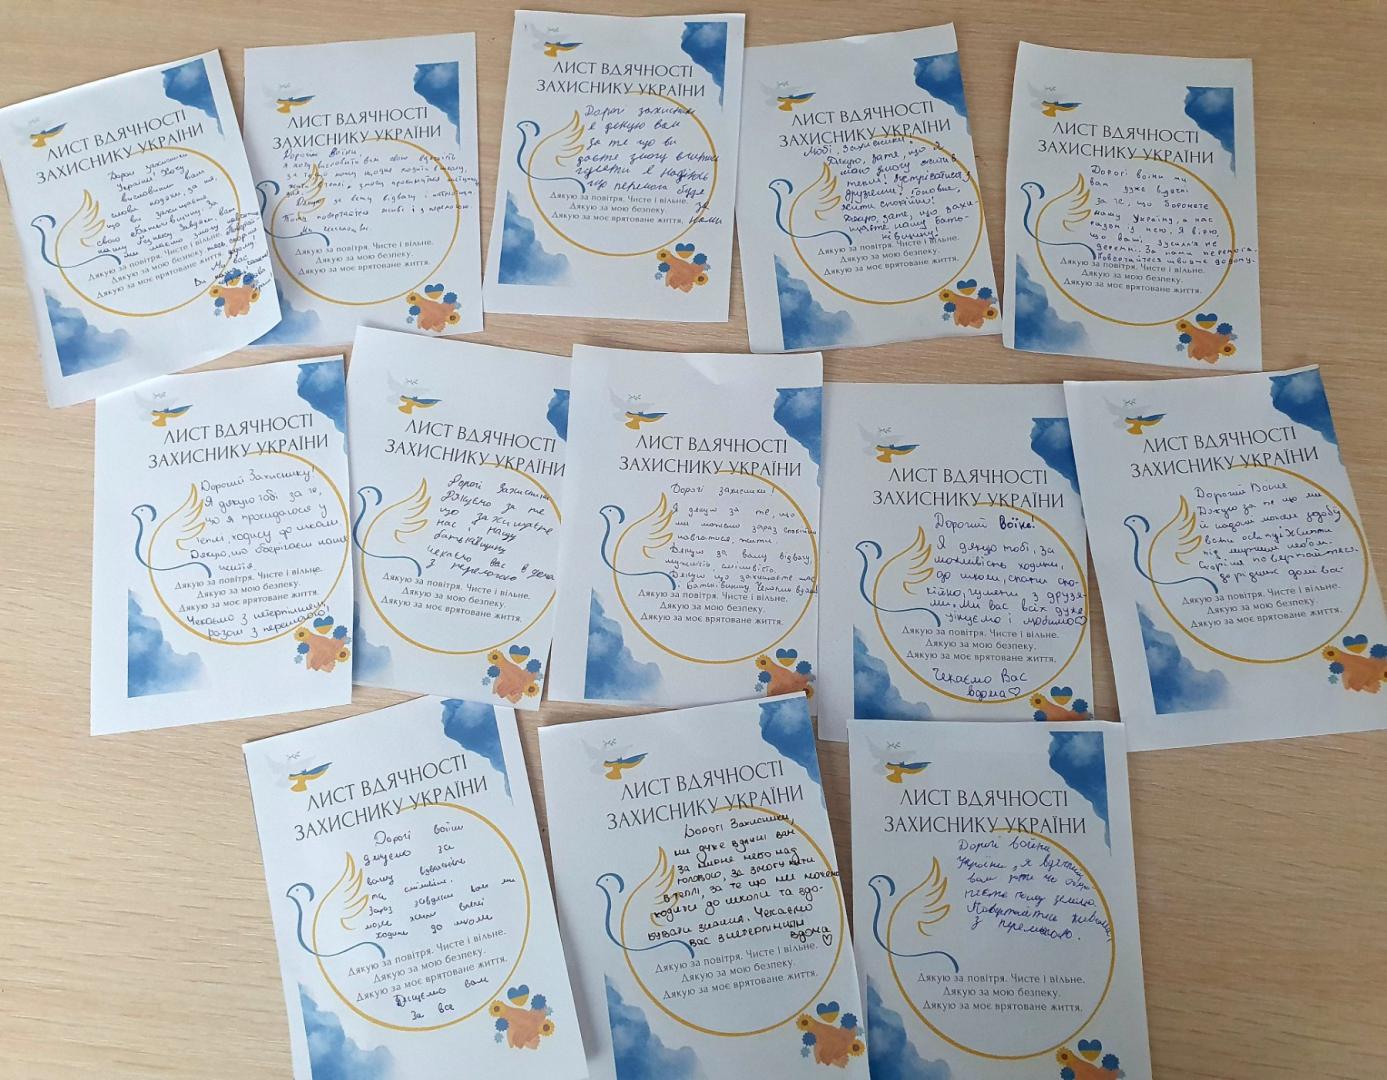 ЛИСТ ВДЯЧНОСТІ
ЗАХИСНИКУ УКРАЇНИ
Україні Хочу
висловити вам
слова подяки за те,
що ви захищаєте
свою Батьківщину. За
Дякую за повітря. Чисте і вільне.
Дякую за мою безпеку.
Дякую за моє врятоване життя.
ЛИСТ ВДЯЧНОСТІ
ЗАХИСНИКУ УКРАЇНИ
Дорогі Воїни
Дякую за вашу відвагу і
Дякую за повітря. Чисте і вільне.
Дякую за мою безпеку.
Дякую за моє врятоване життя.
ЛИСТ ВДЯЧНОСТІ
ЗАХИСНИКУ УКРАЇНИ
Дорогі захисники
я дякую вам
за те що ви
даєте змогу вчитися
перемога буде
за нами
Дякую за повітря. Чисте і вільне.
Дякую за мою безпеку.
Дякую за моє врятоване життя.
ЛИСТ ВДЯЧНОСТІ
ЗАХИСНИКУ УКРАЇНИ
Любі, Захисники!
Дякую, зате, що я
маю змогу жити в
теплі! Зустрічатися з
друзями! Головне,
жити спокійно!
Дякую, зате, що захи-
щаєте нашу бать-
ківщину!
Дякую за повітря. Чисте і вільне.
Дякую за мою безпеку.
Дякую за моє врятоване життя.
ЛИСТ ВДЯЧНОСТІ
ЗАХИСНИКУ УКРАЇНИ
Дорогі воїни ми
вам дуже вдячні
за те, що бороните
нашу Україну, а нас
разом із нею. Я вірю,
що ваші зусилля не
даремні. За нами перемога.
Повертайтеся швидше додому.
Дякую за повітря. Чисте і вільне.
Дякую за мою безпеку.
Дякую за моє врятоване життя.
ЛИСТ ВДЯЧНОСТІ
ЗАХИСНИКУ УКРАЇНИ
Дорогий Захиснику!
Я дякую тобі за те,
що я прокидаюся у
теплі, ходжу до школи
Дякую, що оберігаєш наше
життя.
Дякую за повітря. Чисте і вільне.
Дякую за мою безпеку.
Дякую за моє врятоване життя.
Чекаємо з нетерпінням,
разом з перемогою!
ЛИСТ ВДЯЧНОСТІ
ЗАХИСНИКУ УКРАЇНИ
Дорогі Захисники
Дякуємо за те
що захищаєте
нас і нашу
батьківщину
Чекаємо вас в дома
з перемогою
Дякую за повітря. Чисте і вільне.
Дякую за мою безпеку.
Дякую за моє врятоване життя.
ЛИСТ ВДЯЧНОСТІ
ЗАХИСНИКУ УКРАЇНИ
Дорогі захисники!
Я дякую за те, що
ми можемо зараз спокійно
навчатися, жити.
Дякую за вашу відвагу,
мужність, сміливість.
Дякую що захищаєте нас
і батьківщину. Чекаємо вдома!
Дякую за повітря. Чисте і вільне.
Дякую за мою безпеку.
Дякую за моє врятоване життя.
ЛИСТ ВДЯЧНОСТІ
ЗАХИСНИКУ УКРАЇНИ
Дорогий воїне!
Я дякую тобі, за
можливість ходити,
до школи, спати спо-
кійно, гуляти з друзя-
ми, ми вас всіх дуже
цінуємо і любимо♡
Дякую за повітря. Чисте і вільне.
Дякую за мою безпеку.
Дякую за моє врятоване життя.
Чекаємо Вас
вдома♡
ЛИСТ ВДЯЧНОСТІ
ЗАХИСНИКУ УКРАЇНИ
Дорогий Воїне
Дякую за те що ми
під мирним небом.
Скоріше повертайтеся.
Дякую за повітря. Чисте і вільне.
Дякую за мою безпеку.
Дякую за моє врятоване життя.
ЛИСТ ВДЯЧНОСТІ
ЗАХИСНИКУ УКРАЇНИ
Дорогі воїни
дякуємо за
вашу відважність
та сміливість.
зараз завдяки вам ми
може жити вчитись
ходити до школи
Дякую за повітря. Чисте і вільне.
Дякую за мою безпеку.
Дякую за моє врятоване життя.
Дякуємо вам
За все
ЛИСТ ВДЯЧНОСТІ
ЗАХИСНИКУ УКРАЇНИ
Дорогі Захисники,
ми дуже вдячні вам
за мирне небо над
головою, за змогу жити
в теплі, за те що ми можемо
ходити до школи та здо-
бувати знання. Чекаємо
вас з нетерпінням
вдома ♡
Дякую за повітря. Чисте і вільне.
Дякую за мою безпеку.
Дякую за моє врятоване життя.
ЛИСТ ВДЯЧНОСТІ
ЗАХИСНИКУ УКРАЇНИ
Дорогі воїни
України, я вдячний
вам зате що
нашу землю.
Повертайтесь живими,
з перемогою.
Дякую за повітря. Чисте і вільне.
Дякую за мою безпеку.
Дякую за моє врятоване життя.